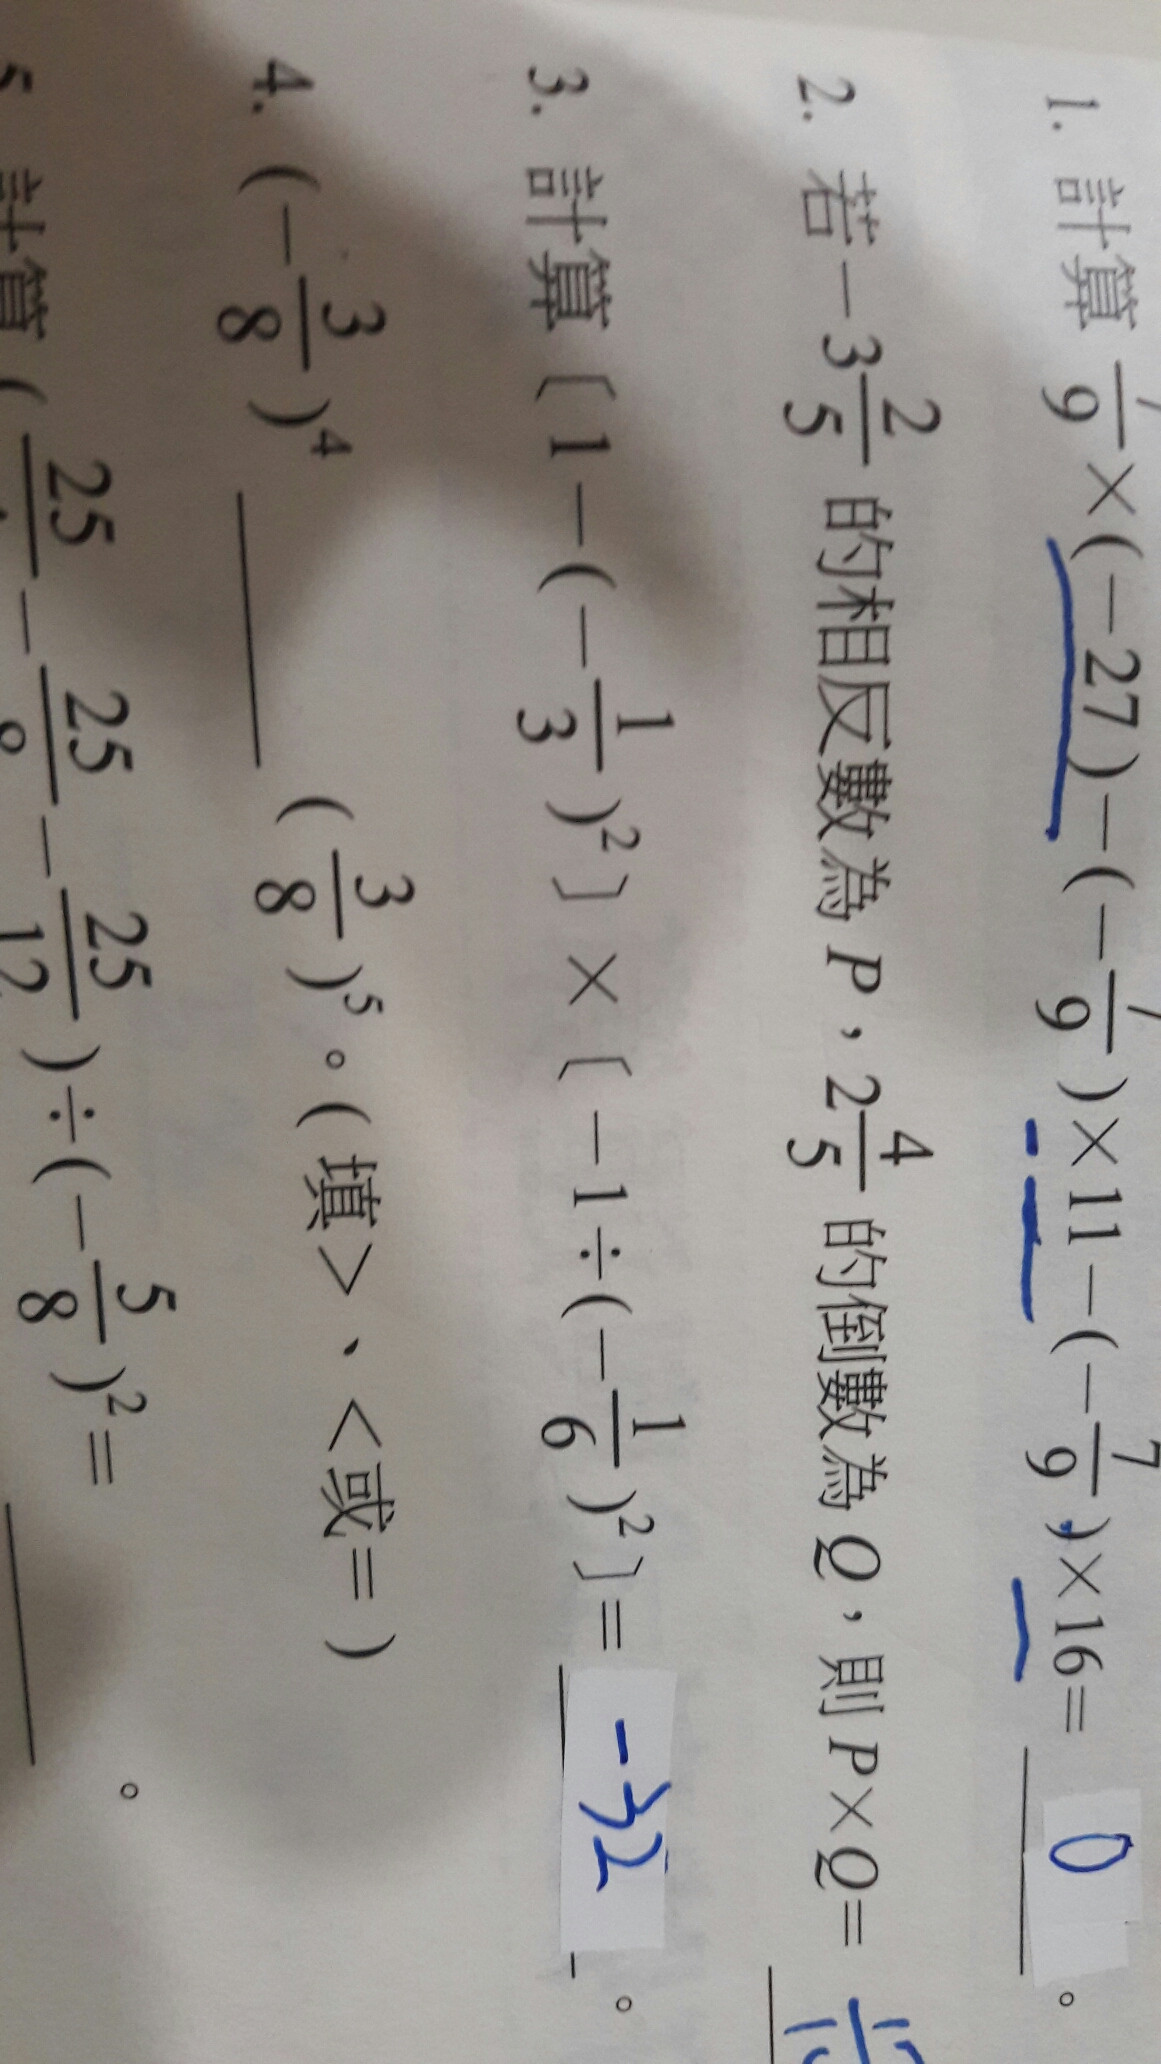 1. 計算 7/9×(−27)−(−7/9)×11−(−7/9)×16= 0 。
2. 若−3 2/5 的相反數為 P，2 4/5 的倒數為 Q，則 P×Q=
3. 計算〔1−(−1/3)²〕×〔−1÷(−1/6)²〕= −32 。
4. (−3/8)⁴ ______ (3/8)⁵。(填>、<或=)
5. 計算(25/ − 25/8 − 25/12)÷(−5/8)²= ______ 。